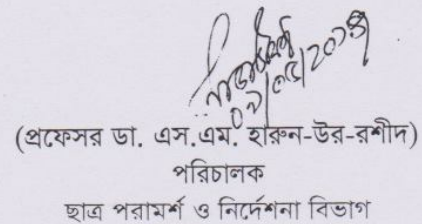 (প্রফেসর ডা. এস.এম. হারুন-উর-রশীদ)
পরিচালক
ছাত্র পরামর্শ ও নির্দেশনা বিভাগ